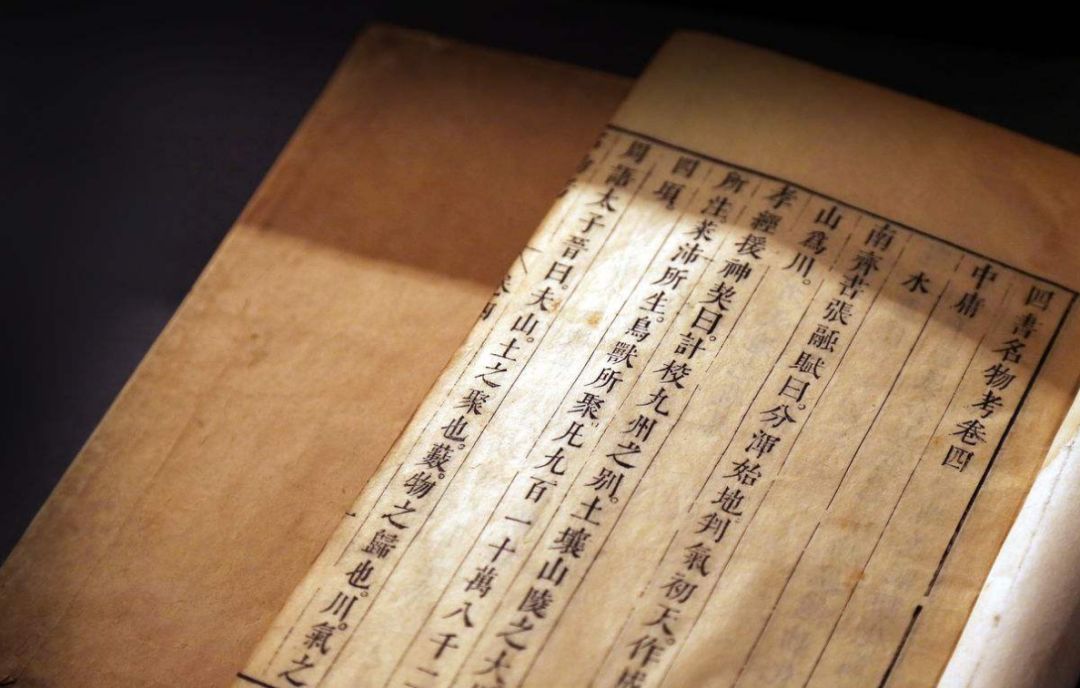 四書名物考卷四
中庸
水
南齊書張融賦曰。分渾始地。判氣初天。作成
山爲川。
孝經援神契曰。計校九州之別。土壤山陵之大
所注。萊沛所生。鳥獸所聚。凡九百一十萬八千二
四頃
周語太子晉曰。夫山。土之聚也。藪。物之歸也。川。氣之